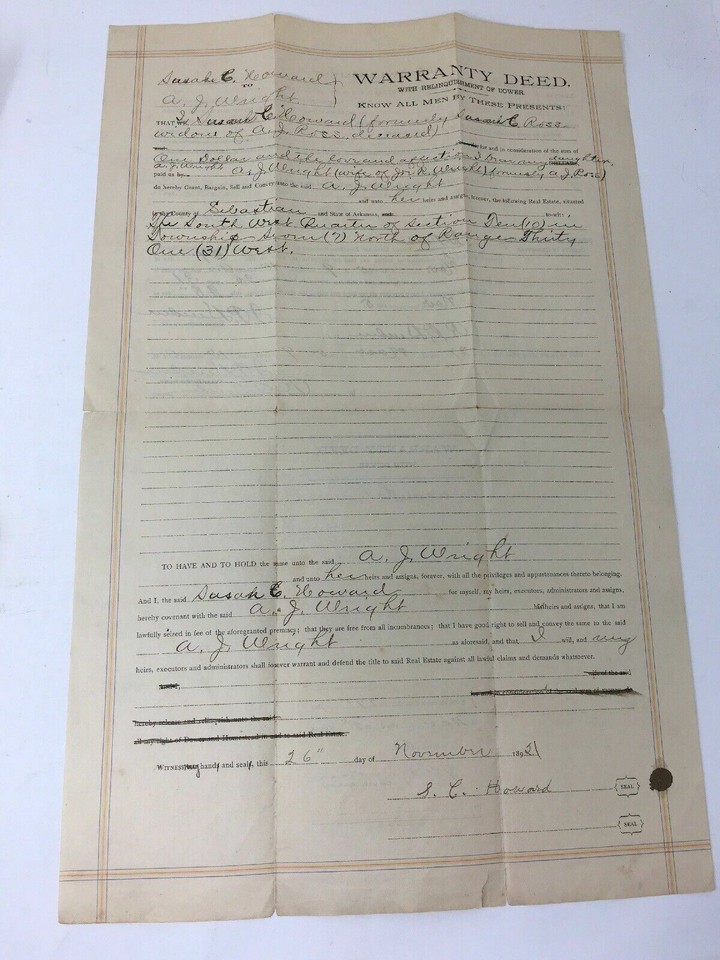 Susan C. Howard
TO
A. J. Wright
WARRANTY DEED.
WITH RELINQUISHMENT OF DOWER.
KNOW ALL MEN BY THESE PRESENTS:
THAT I Susan C. Howard (formerly Susan C. Ross
widow of A. J. Ross, deceased)
for and in consideration of the sum of
One Dollar and the love and affection I bear my daughter,
A. J. Wright
paid as by A. J. Wright (wife of Wright) (formerly A. J. Ross)
do hereby Grant, Bargain, Sell and Convey unto the said A. J. Wright
and unto her heirs and assigns, forever, the following Real Estate, situated
in the County of Sebastian and State of Arkansas, to-wit:
The South West Quarter of Section Ten (10) in
Township Seven (7) North of Range Thirty
One (31) West.
TO HAVE AND TO HOLD the same unto the said A. J. Wright
and unto her heirs and assigns, forever, with all the privileges and appurtenances thereto belonging.
And I, the said Susan C. Howard for myself, my heirs, executors, administrators and assigns,
hereby covenant with the said A. J. Wright heirs and assigns, that I am
lawfully seized in fee of the aforegranted premises; that they are free from all incumbrances; that I have good right to sell and convey the same to the said
A. J. Wright as aforesaid, and that I will, and my
heirs, executors and administrators shall forever warrant and defend the title to said Real Estate against all lawful claims and demands whatsoever.
hereby release and relinquish unto the said
all my right of Dower and Homestead in and to said Real Estate.
WITNESS my hand and seal, this 26" day of November 189
S. C. Howard SEAL
SEAL